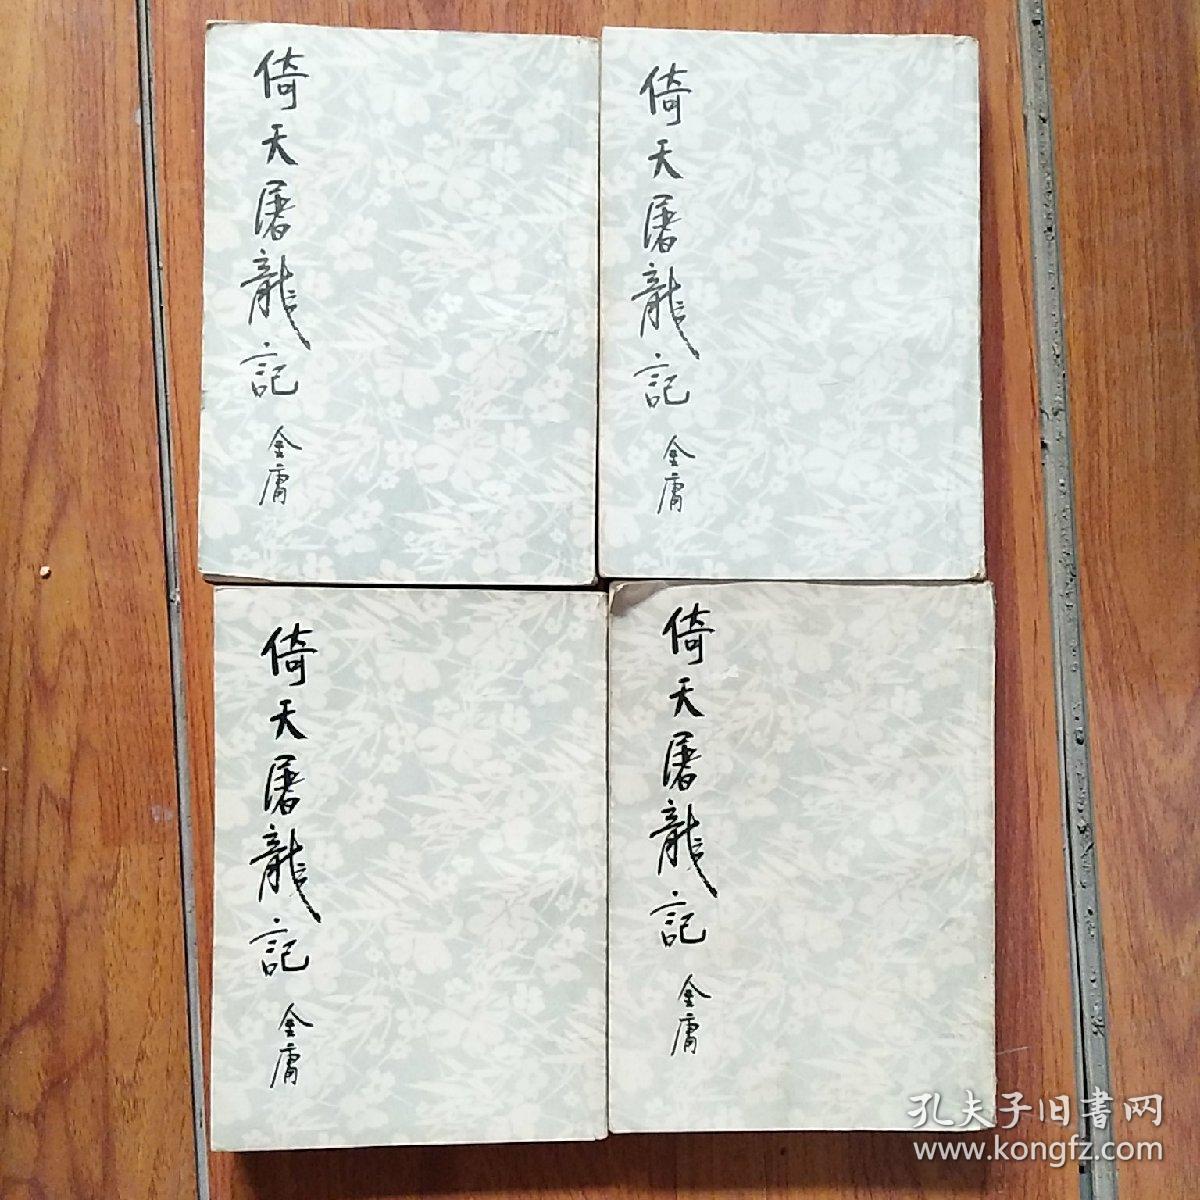 倚天屠龍記
金庸
倚天屠龍記
金庸
倚天屠龍記
金庸
倚天屠龍記
金庸
孔夫子旧書网
www.kongfz.com